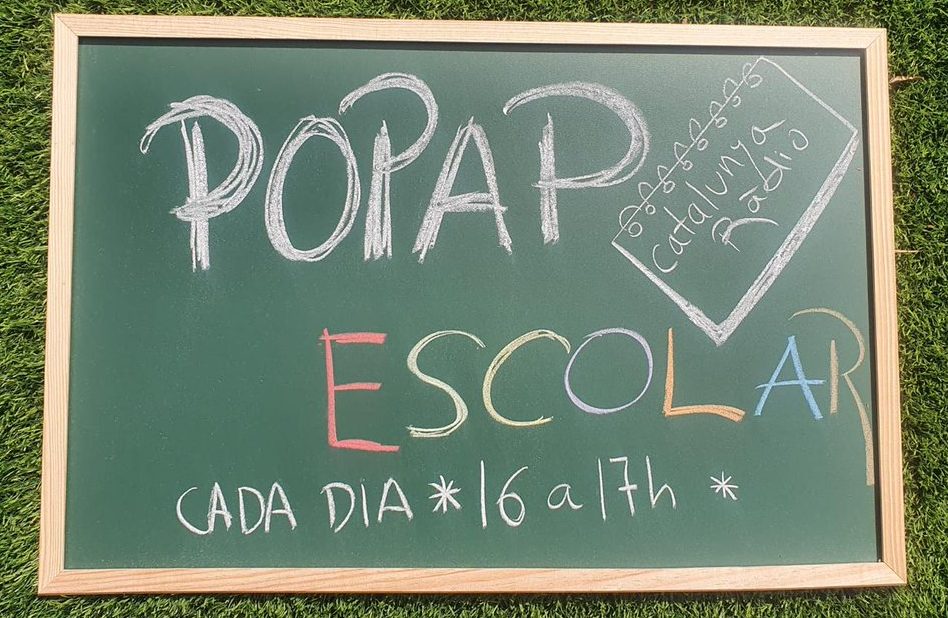 POPAP
catalunya
Ràdio
ESCOLAR
CADA DIA * 16 a 17h *